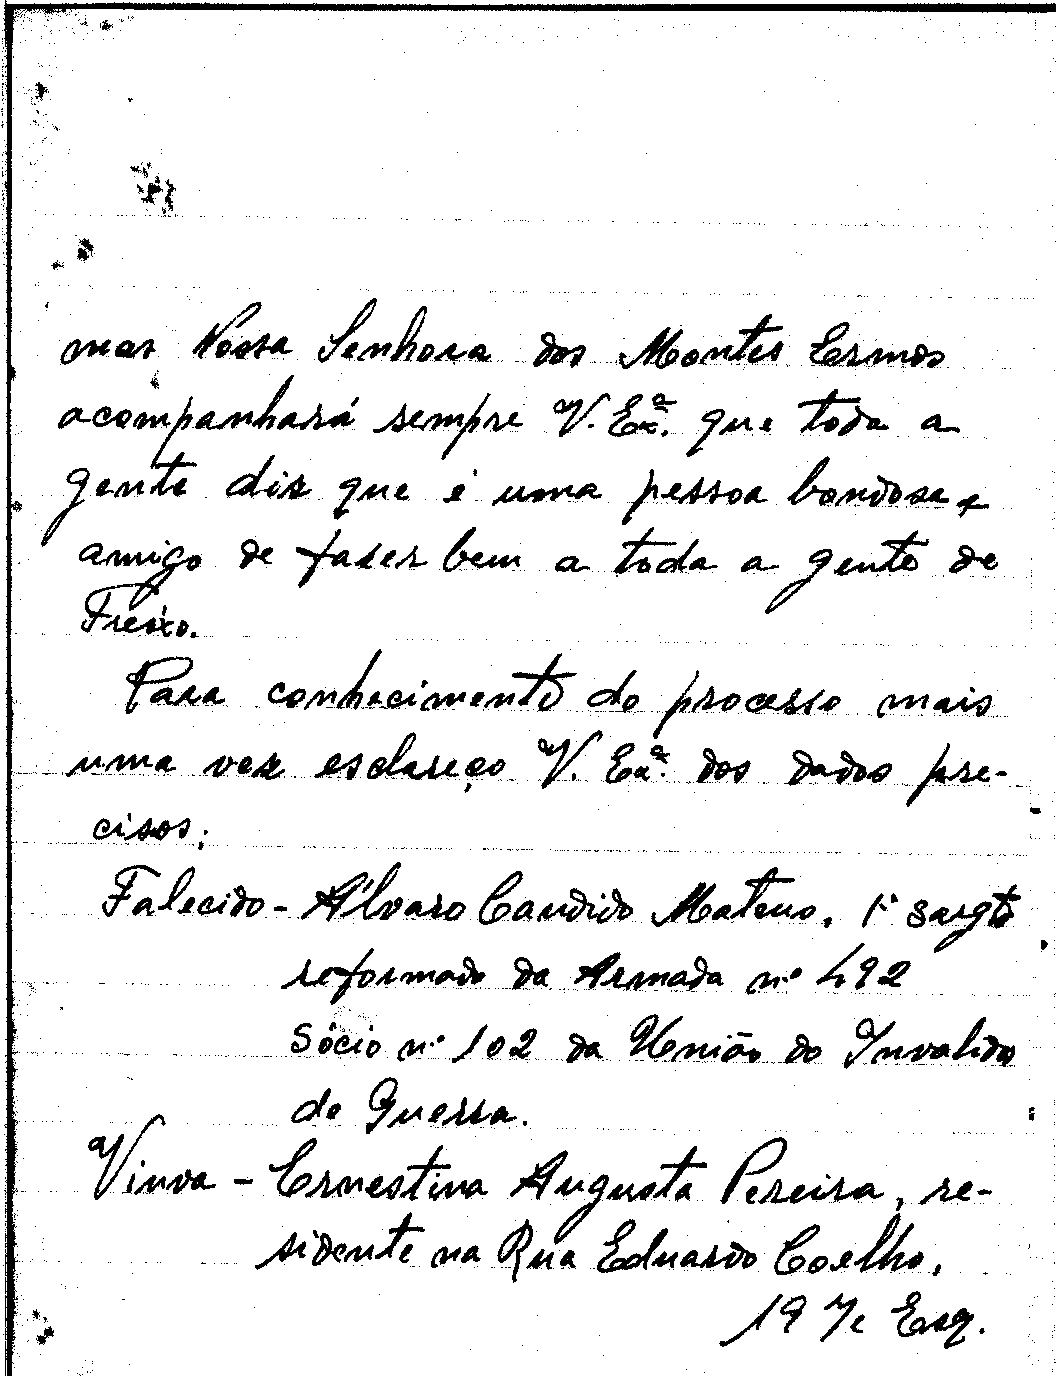 mas Nossa Senhora dos Montes Ermos
acompanhará sempre V. Exª. que toda a
gente diz que é uma pessoa bondosa e
amigo de fazer bem a toda a gente de
Freixo.
Para conhecimento do processo mais
uma vez esclareço V. Exª. dos dados pre-
cisos:
Falecido - Álvaro Candido Mateus, 1º sargtº
reformado da Armada nº 492
Sócio nº 102 da União do Invalido
de Guerra.
Viuva - Ernestina Augusta Pereira, re-
sidente na Rua Eduardo Coelho,
19 Esq.